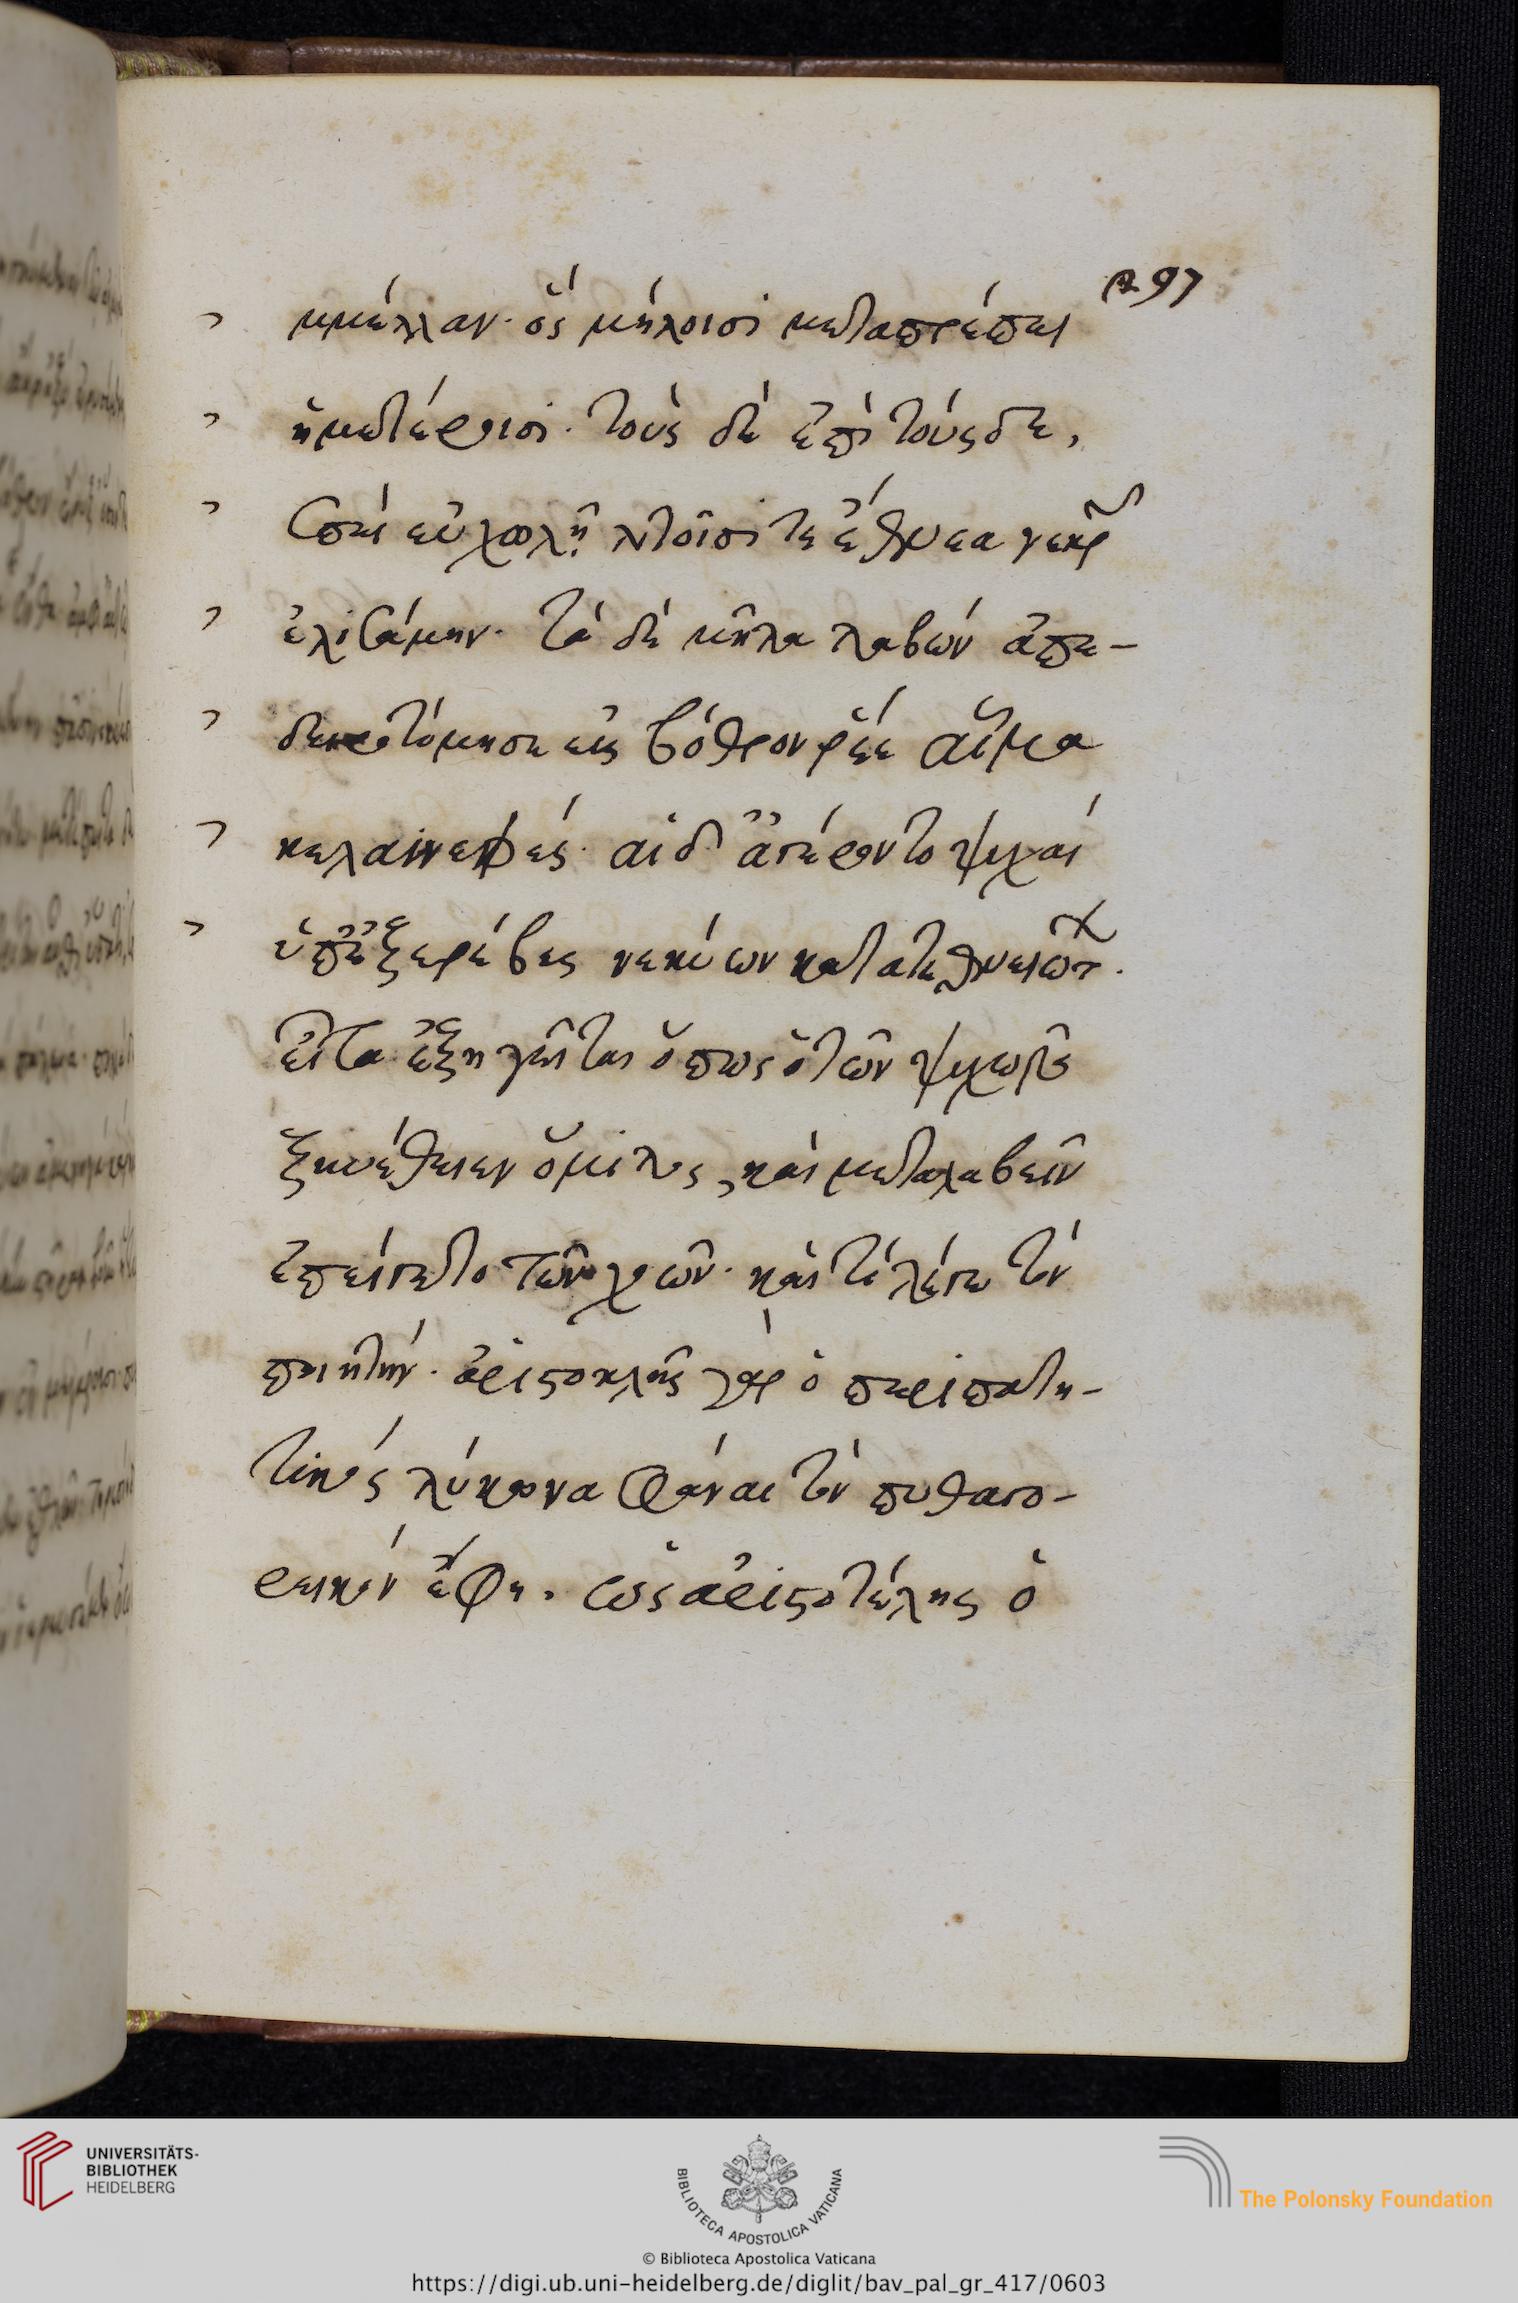 297
μμέλλαν. ὃς μήλοισι μεταπρέπει
ἡμετέροισι. τοὺς δὲ ἐπὶ τούςδε,
ἐπεὶ εὐχωλῇ λιτοῖσί τε ἔθνεα νεκρῶν
ἐλισάμην. τὰ δὲ μῆλα λαβὼν ἀπε-
δειροτόμησα εἰς βόθρον ῥέε αἷμα
κελαινεφές. αἱ δ' ἀγέροντο ψυχαὶ
ὑπὲξ ἐρέβευς νεκύων κατατεθνειώτων.
εἶτα ἐξηγεῖται ὅπως ὁ τῶν ψυχῶν ἐ
ξηυέθειεν ὅμιλος, καὶ μεταλαβεῖν
ἐπείγετο τῶν χοῶν. καὶ τί λέγω τὸν
ποιητήν. ἀριστοκλῆς γὰρ ὁ περιπατη-
τικὸς λύκωνα φάναι τὸν πυθαγο-
ρεικὸν ἔφη. ὡς ἀριστοτέλης ὁ
UNIVERSITÄTS-
BIBLIOTHEK
HEIDELBERG
BIBLIOTECA APOSTOLICA VATICANA
The Polonsky Foundation
© Biblioteca Apostolica Vaticana
https://digi.ub.uni-heidelberg.de/diglit/bav_pal_gr_417/0603